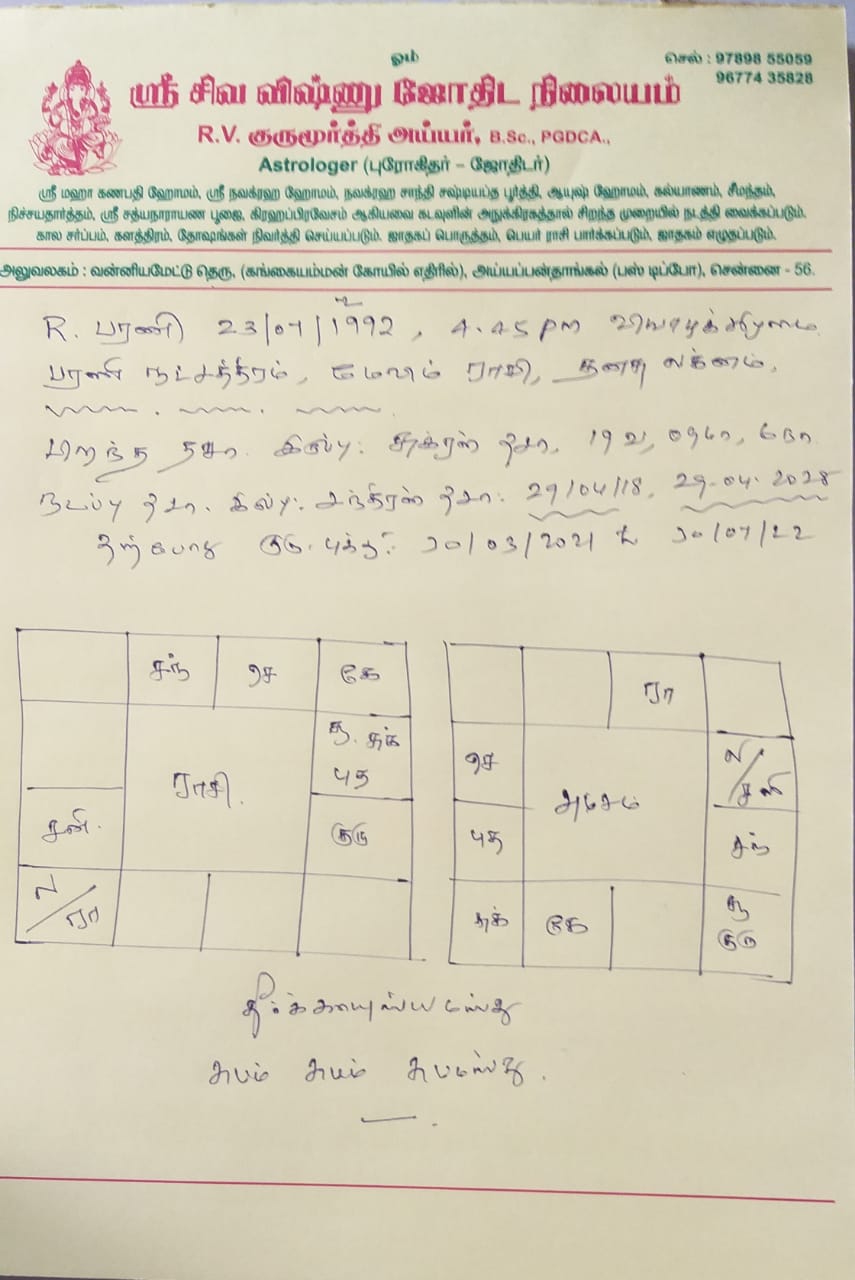 ஓம்
செல் : 97898 55059
96774 35828
ஸ்ரீ சிவ விஷ்ணு ஜோதிட நிலையம்
R.V. குருமூர்த்தி அய்யர், B.Sc., PGDCA.,
Astrologer (புரோகிதர் – ஜோதிடர்)
ஸ்ரீ மஹா கணபதி ஹோமம், ஸ்ரீ நவக்ரஹ ஹோமம், நவக்ரஹ சாந்தி சஷ்டியப்த பூர்த்தி, ஆயுஷ ஹோமம், கல்யாணம், சீமந்தம்,
நிச்சயதார்த்தம், ஸ்ரீ சத்யநாராயண பூஜை, கிரஹப்பிரவேசம் ஆகியவை கடவுளின் அநுக்கிரகத்தால் சிறந்த முறையில் நடத்தி வைக்கப்படும்.
கால சர்ப்பம், களத்திரம், தோஷங்கள் நிவர்த்தி செய்யப்படும். ஜாதகப் பொருத்தம், பெயர் ராசி பார்க்கப்படும், ஜாதகம் எழுதப்படும்.
அலுவலகம் : வன்னியமேட்டு தெரு, (கங்கையம்மன் கோயில் எதிரில்), அய்யப்பன்தாங்கல் (பஸ் டிப்போ), சென்னை - 56.
R. பரணி 23/07/1992, 4.45 pm வியாழக்கிழமை
பரணி நட்சத்திரம், மேஷம் ராசி, தனுசு லக்னம்,
பிறந்த தசா. இருப்பு: சுக்ரன் தசா, 19 வ,
நடப்பு தசா. இருப்பு: சந்திரன் தசா: 29/04/18, 29-04-2028
தற்போது குரு புக்தி: 30/03/2021 to 30/07/22
சந் செ கே
சூ. சுக்
புத
ராசி.
சனி. குரு
ல/ரா
ரா
செ ல/சனி
அம்சம்
புத சந்
சுக் கே சூ
குரு
தீர்க்காயுஸ்யமஸ்து
சுபம் சுபம் சுபமஸ்து.